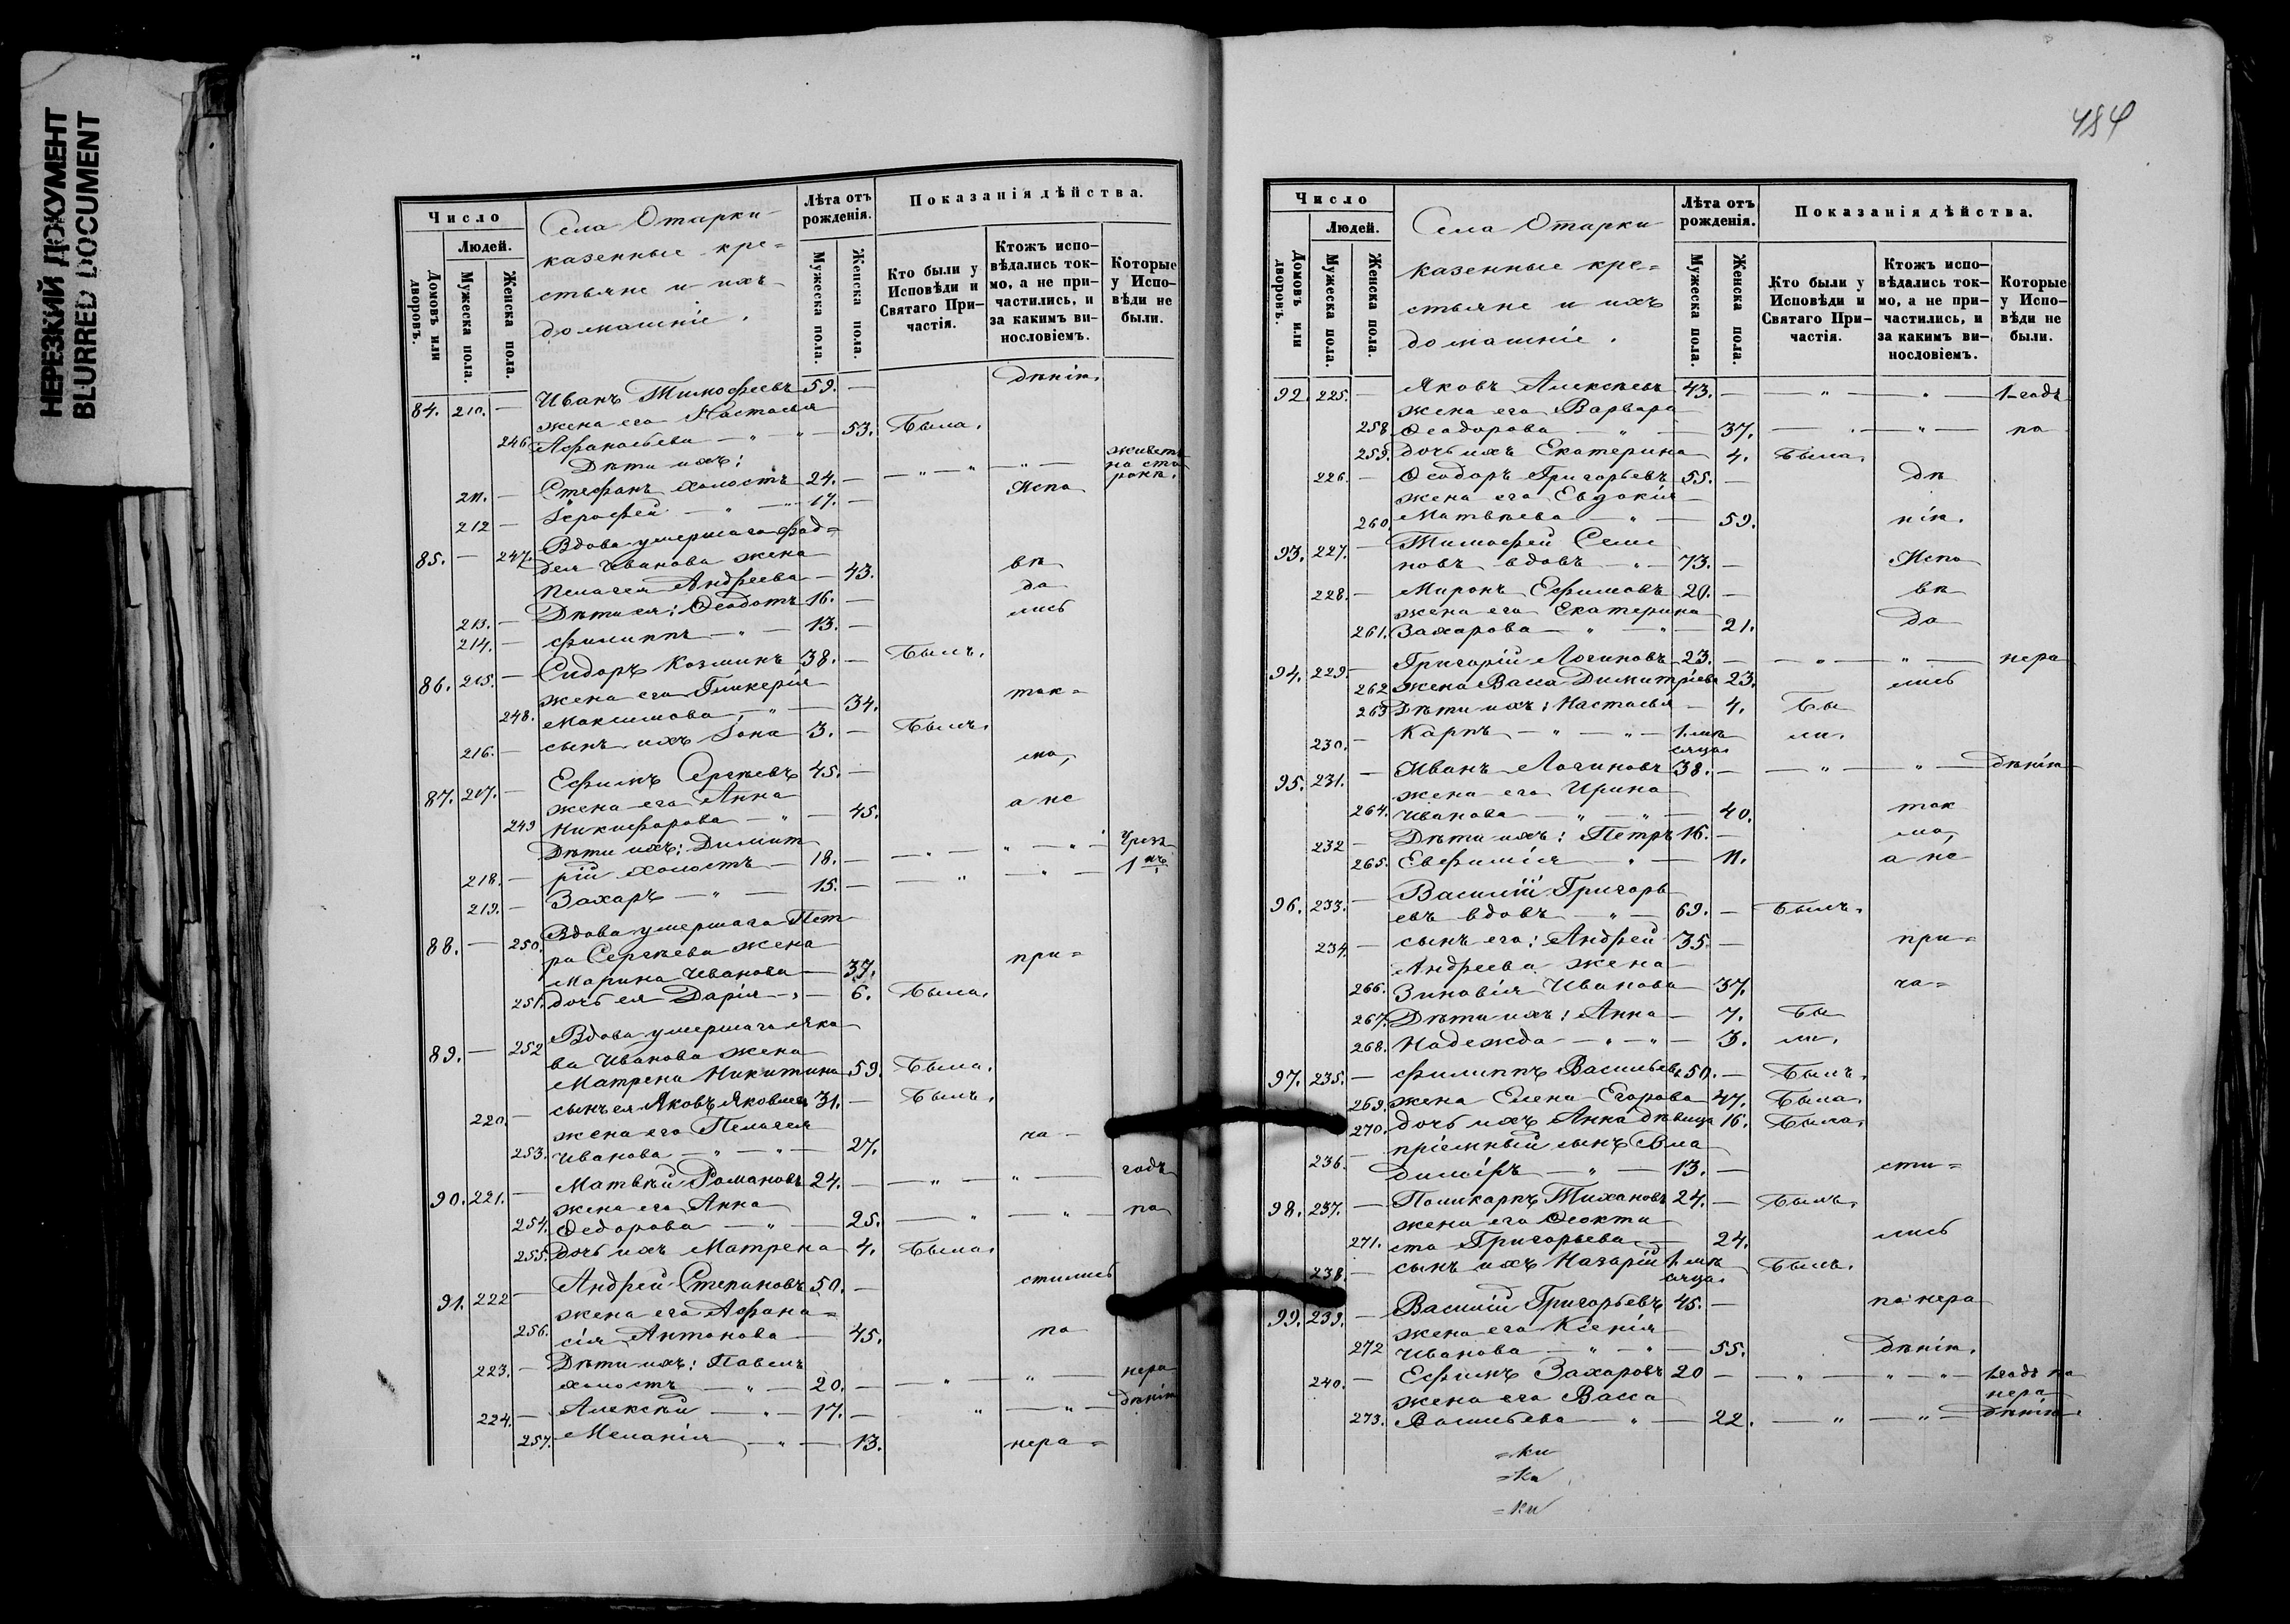 НЕРЕЗКИЙ ДОКУМЕНТ
BLURRED DOCUMENT
Число
Людей.
Домовъ или дворовъ.
Мужеска пола.
Женска пола.
Села Отарки
казенные кре=
стьяне и ихъ
домашніе.
Лѣта отъ рожденія.
Мужеска пола.
Женска пола.
Показанія дѣйства.
Кто были у Исповѣди и Святаго Причастія.
Ктожъ исповѣдались токмо, а не причастились, и за какимъ винословіемъ.
Которые у Исповѣди не были.
дѣнію.
84. 210. — Иванъ Тимофеевъ 59. —
жена его Настасья
246 Афанасьева — " — " — 53. Была.
Дѣти ихъ:
211. — Стефанъ холостъ 24. — — " — " — " — живетъ на сторонѣ.
212 — Іерофей — " — " 17. — Испо
85. — 247. Вдова умершаго Фад=
дея Иванова жена
Пелагея Андреева — 43. вѣ
213. — Дѣти ея: Ѳеодотъ 16. — да
214. — Филиппъ — " — 13. — лись
86. 215. — Сидоръ Козминъ 38. — Былъ.
жена его Гликерія
248. Максимова — " — 34. ток=
216. — сынъ ихъ Іона 3. — Былъ.
87. 217. — Ефимъ Сергѣевъ 45. — мо,
жена его Анна
249 Никифорова — " — 45. а не
Дѣти ихъ: Димит
218. — рій холостъ — 18. — — " — " — " —
219. — Захаръ — " — 15. — — " — " —
88. — 250. Вдова умершаго Пет
ра Сергѣева жена
Марина Иванова — 37. при=
251. дочь ея Дарія — " — 6. Была.
89. — 252 Вдова умершаго Яко
ва Иванова жена
Матрена Никитина 59. Была.
220. — сынъ ея Яковъ Яковлевъ 31. — Былъ.
жена его Пелагея
253. Иванова — " — " — 27. ча —
90. 221. — Матвѣй Романовъ 24. — — " — " — годъ
жена его Анна
254. Ѳедорова — " — 25. — " — " — по
255. дочь ихъ Матрена 4. Была.
91. 222 — Андрей Степановъ 50. — стились
жена его Афана=
256. сія Антонова — 45. по
223. — Дѣти ихъ: Павелъ
холостъ — " — 20. — — " — " — нера
224. — Алексѣй — " — 17. — " — " — дѣнію
257. Меланія — " — 13. нера=
484
Число
Людей.
Домовъ или дворовъ.
Мужеска пола.
Женска пола.
Села Отарки
казенные кре=
стьяне и ихъ
домашніе.
Лѣта отъ рожденія.
Мужеска пола.
Женска пола.
Показанія дѣйства.
Кто были у Исповѣди и Святаго Причастія.
Ктожъ исповѣдались токмо, а не причастились, и за какимъ винословіемъ.
Которые у Исповѣди не были.
92. 225. — Яковъ Алексѣевъ 43. — — " — " — 1-годъ
жена его Варвара
258 Ѳеодорова — " — 37. — " — " — по
259. дочь ихъ Екатерина 4. Была.
226. — Ѳеодоръ Григорьевъ 55. — дѣ
жена его Евдокія
260. Матвѣева — " — 59. нію.
93. 227. — Тимофей Семе
новъ вдовъ — " — 73. — Испо
228. — Миронъ Ефимовъ 20. — вѣ
жена его Екатерина
261. Захарова — " — " — 21. да
94. 229. — Григорій Логиновъ 23. — — " — " — нера
262 жена Васса Димитріева 23. лись
263 Дѣти ихъ: Настасья — 4. Бы
230. — Карпъ — " — " — 1. мѣсяца ли.
95. 231. — Иванъ Логиновъ 38. — — " — " — дѣнію
жена его Ирина
264. Иванова — " — " — 40. ток
232 — Дѣти ихъ: Петръ 16. — мо,
265. Евфимія — " — 11. а не
96. 233. — Василій Григорь
евъ вдовъ — " — 69. — Былъ.
234. — сынъ его: Андрей 35. — при=
Андреева жена
266. Зиновія Иванова 37. ча=
267. Дѣти ихъ: Анна — 7. Бы
268. Надежда — " — " — 3. ли.
97. 235. — Филиппъ Васильевъ 50. — Былъ.
269. жена Елена Егорова 47. Была.
270. дочь ихъ Анна дѣвица 16. Была.
236. — пріемный сынъ Вла
диміръ — " — 13. — сти=
98. 237. — Поликарпъ Тихоновъ 24. — Былъ.
жена его Ѳеокти
271. ста Григорьева — 24. лись
238. — сынъ ихъ Назарій 1. мѣсяца Былъ.
99. 239. — Василій Григорьевъ 45. — по нера
жена его Ксенія
272 Иванова — " — " — 55. дѣнію.
240. — Ефимъ Захаровъ 20 — — " — " — " — 1годъ по
жена его Васса нера
273. Васильева — " — 22. — " — " — дѣнію.
=ки
=ка
=ки